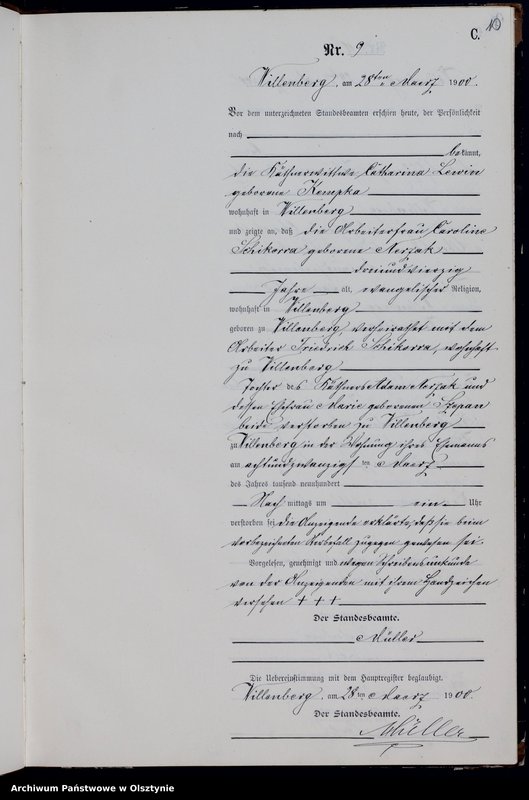 C. 10
Nr. 9
Willenberg, am 28ten Maerz 1900.
Vor dem unterzeichneten Standesbeamten erschien heute, der Persönlichkeit
nach
bekannt,
die Käthnerwittwe Catharina Lewin
geborene Kempka
wohnhaft in Willenberg
und zeigte an, daß die Arbeiterfrau Caroline
Schikorra geborene
dreiundvierzig
Jahre alt, evangelischer Religion,
wohnhaft in Willenberg
geboren zu Willenberg verheirathet mit dem
Arbeiter Friedrich Schikorra, wohnhaft
zu Willenberg
Tochter des Käthners Adam und
dessen Ehefrau Marie geborenen Szepan
beide verstorben zu Willenberg
zu Willenberg in der Wohnung ihres Ehemanns
am achtundzwanzigsten Maerz
des Jahres tausend neunhundert
Nach mittags um ein Uhr
verstorben sei die Anzeigende erklärte, daß sie beim
vorbezeichneten Sterbefall zugegen gewesen sei.
Vorgelesen, genehmigt und wegen Schreibensunkunde
von der Anzeigenden mit ihrem Handzeichen
versehen + + +
Der Standesbeamte.
Müller
Die Uebereinstimmung mit dem Hauptregister beglaubigt.
Willenberg, am 28ten Maerz 1900.
Der Standesbeamte.
Müller
Archiwum Państwowe w Olsztynie